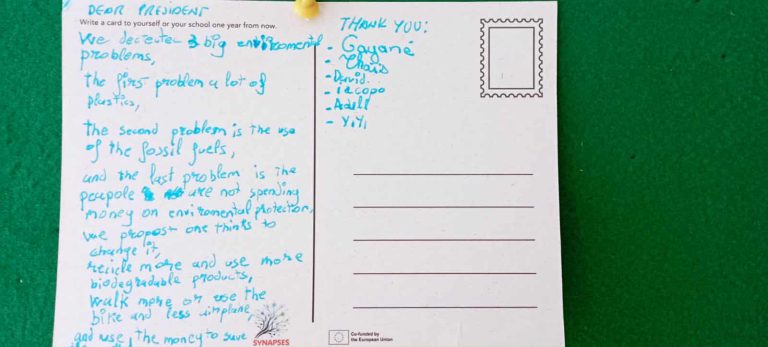 DEAR PRESIDENT
Write a card to yourself or your school one year from now.
We detected 3 big enviromental
problems,
the first problem a lot of
plastics,
the second problem is the use
of the fossil fuels,
and the last problem is the
peapole are not spending
money on enviromental protection,
we propost one thinks to
change it,
recicle more and use more
biodegradable products,
walk more or use the
bike and less airplane,
and use, the money to save
SYNAPSES
THANK YOU:
- Gayané
- Thais
- David.
- Iacopo
- Adell
- YiYi
Co-funded by
the European Union